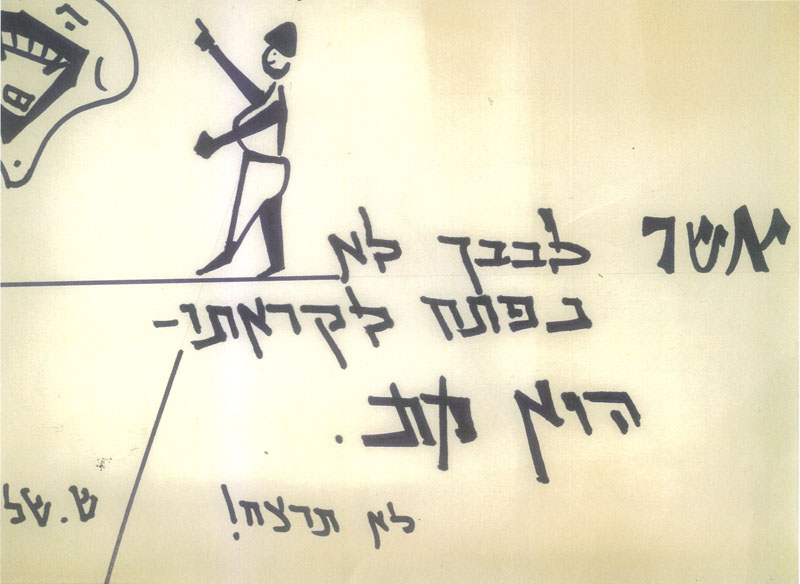 אשר לבבך לא
נפתח לקראתו-
הוא מת.
לא תרצח!
ש. של